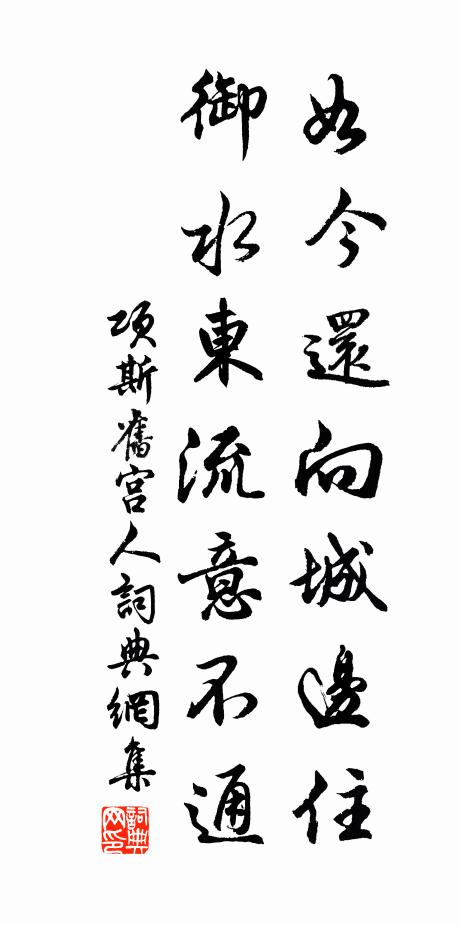 如今還向城邊住
御水東流意不通
項斯舊宮人詞典網集
詞典網印